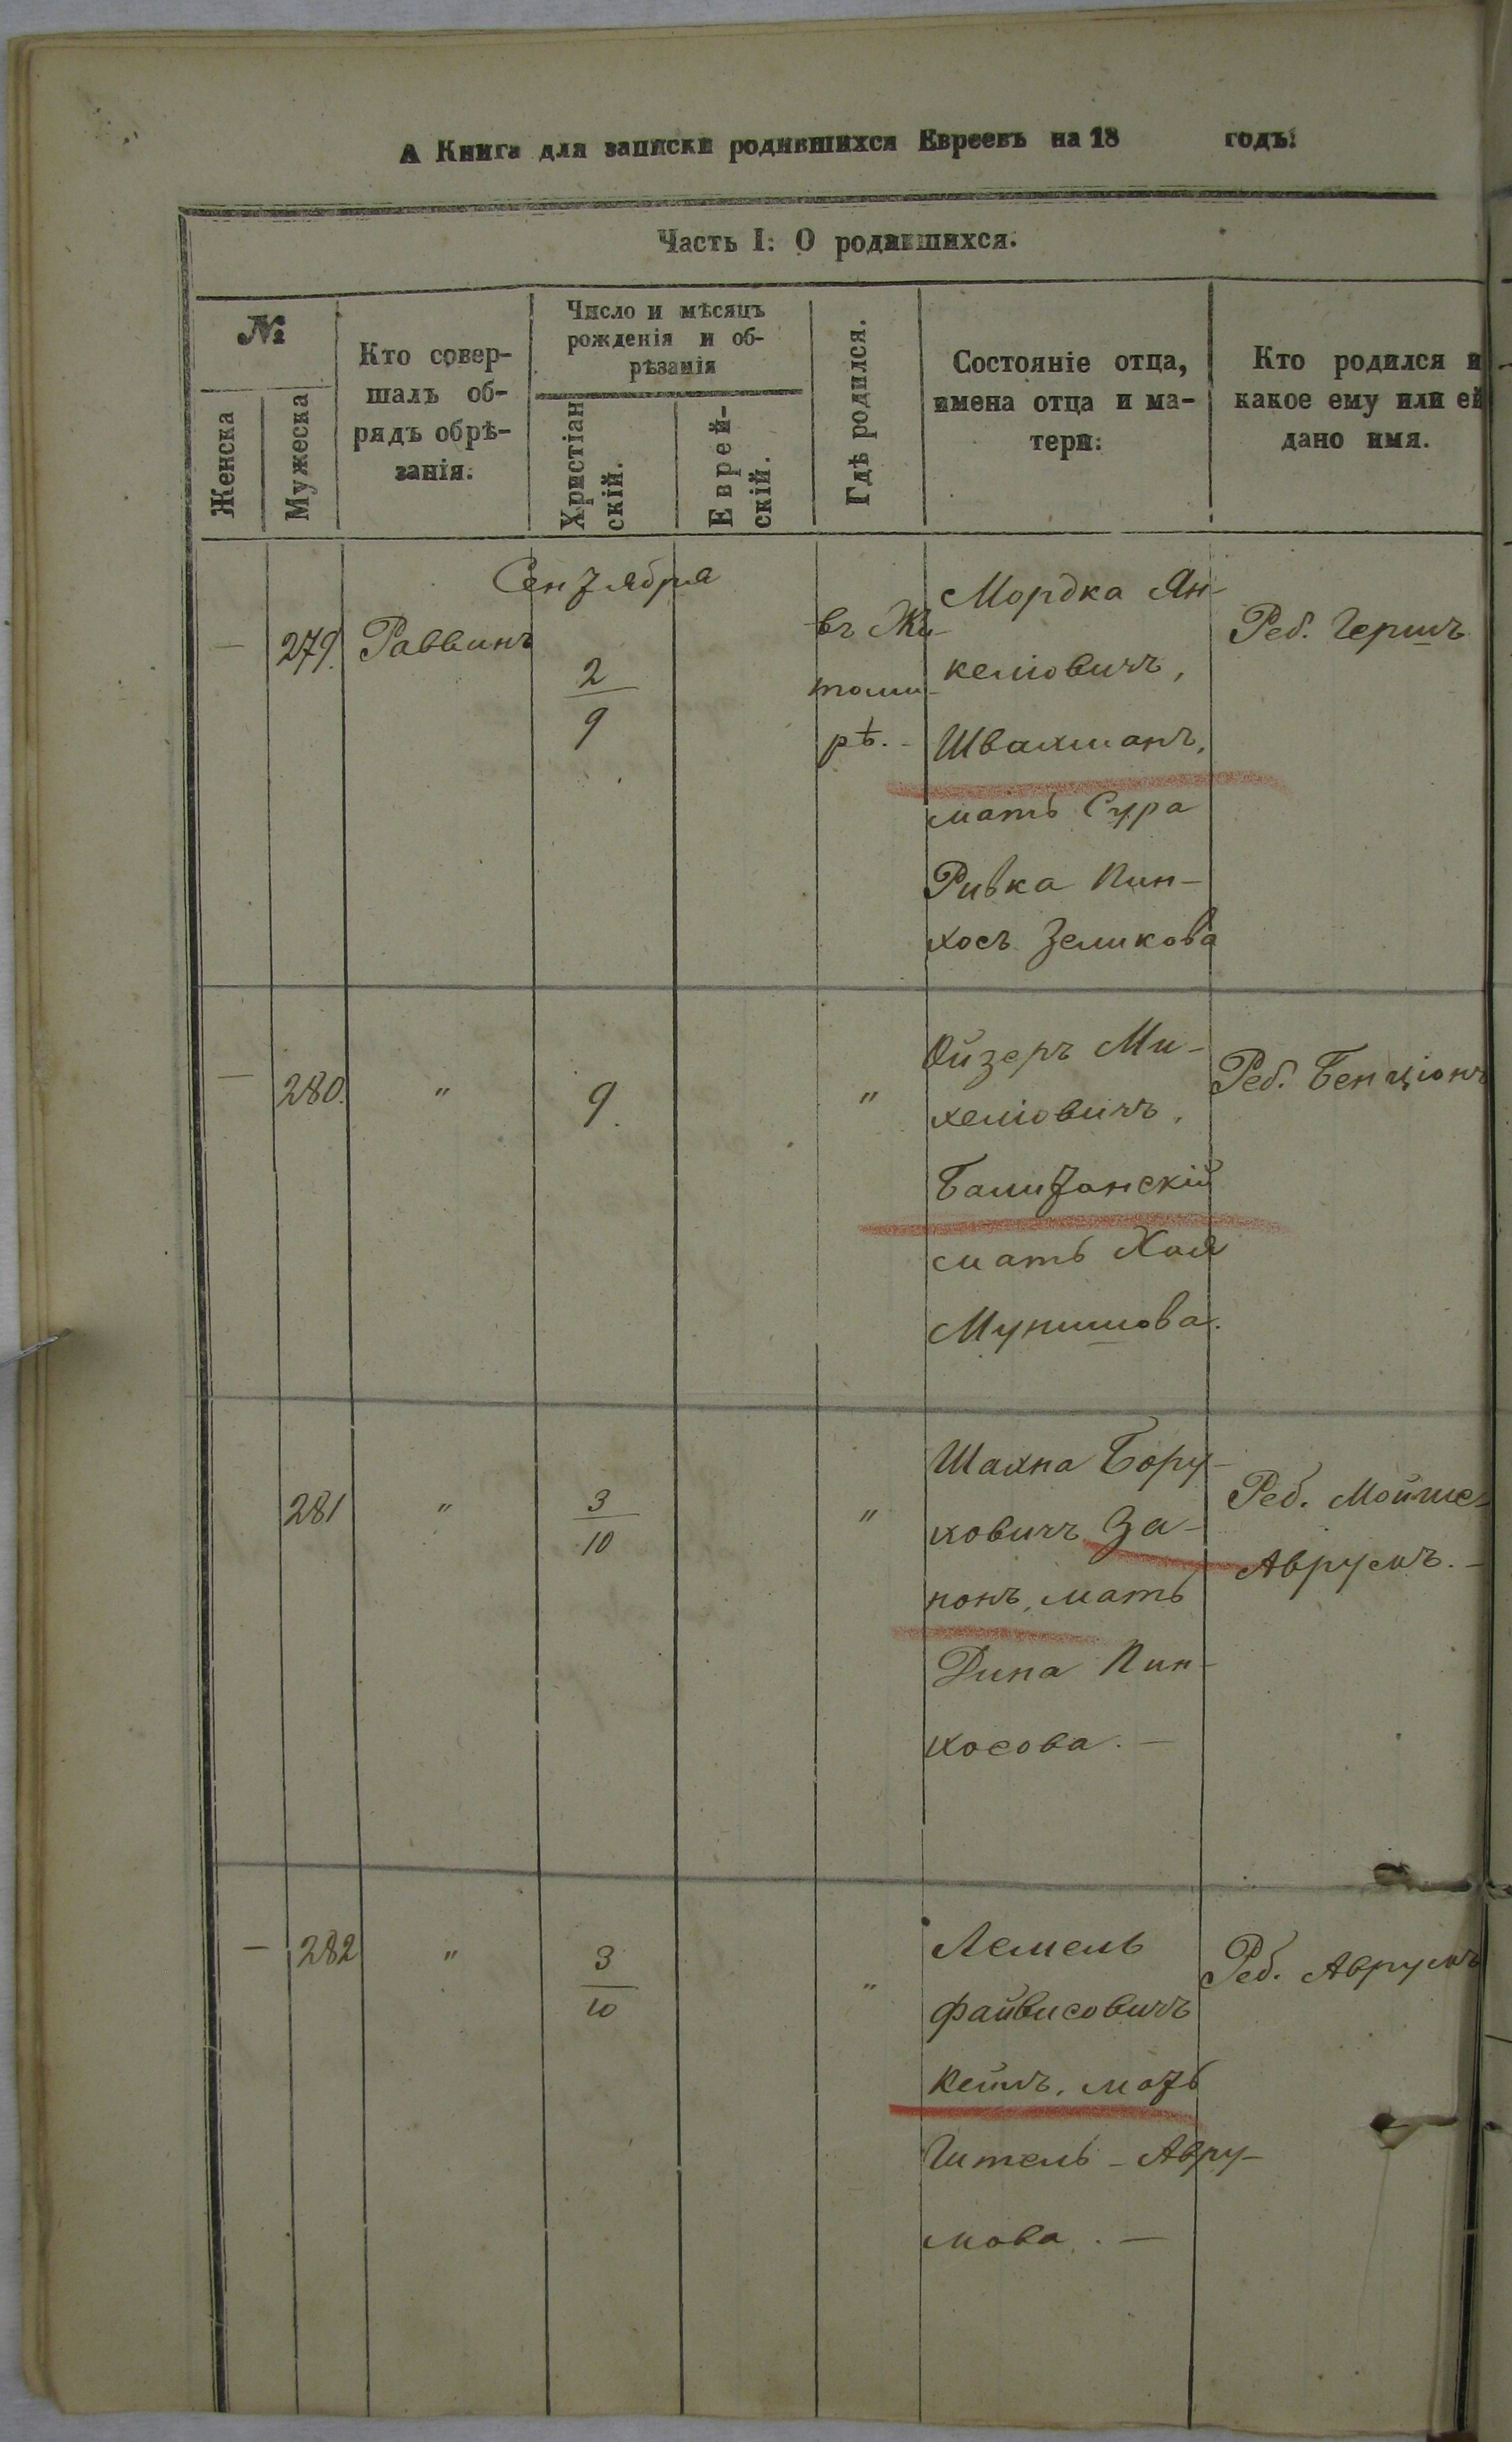 А Книга для записки родившихся Евреевъ на 18 годъ:
Часть I: О родившихся.
№
Женска
Мужеска
Кто совер-
шалъ об-
рядъ обрѣ-
занія.
Число и мѣсяцъ
рожденія и об-
рѣзанія
Христіан
скій.
Еврей-
скій.
Гдѣ родился.
Состояніе отца,
имена отца и ма-
тери:
Кто родился и
какое ему или ей
дано имя.
Сентября
— 279. Раввинъ
2
9
въ Жи-
томи-
рѣ.-
Мордка Ян-
келіовичъ,
Швахманъ,
мать Сура
Ривка Пин-
хосъ Зеликова
Реб. Гершъ
— 280. " 9. "
Ойзеръ Ми-
хеліовичъ,
мать Хая
Реб. Бенціонъ
281 "
3
10
"
Шахна Бору-
ховичъ За-
понъ, мать
Дина Пин-
хосова. —
Реб. Мойше-
Аврумъ. —
— 282 "
3
10
"
Лемель
Файвисовичъ
мать
Гитель - Авру-
мова. —
Реб. Аврумъ